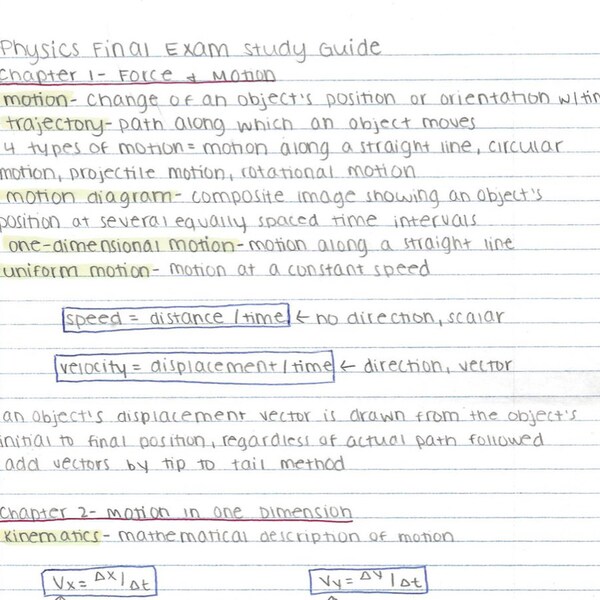 Physics Final Exam Study Guide
Chapter 1- Force & Motion
motion- change of an object's position or orientation w/tim
trajectory- path along which an object moves
4 types of motion= motion along a straight line, circular
motion, projectile motion, rotational motion
motion diagram- composite image showing an object's
position at several equally spaced time intervals
one-dimensional motion- motion along a straight line
uniform motion- motion at a constant speed
speed = distance / time ← no direction, scalar
velocity = displacement / time ← direction, vector
an object's displacement vector is drawn from the object's
initial to final position, regardless of actual path followed
add vectors by tip to tail method
Chapter 2- Motion in one Dimension
kinematics- mathematical description of motion
Vx = Δx/Δt Vy = Δy/Δt